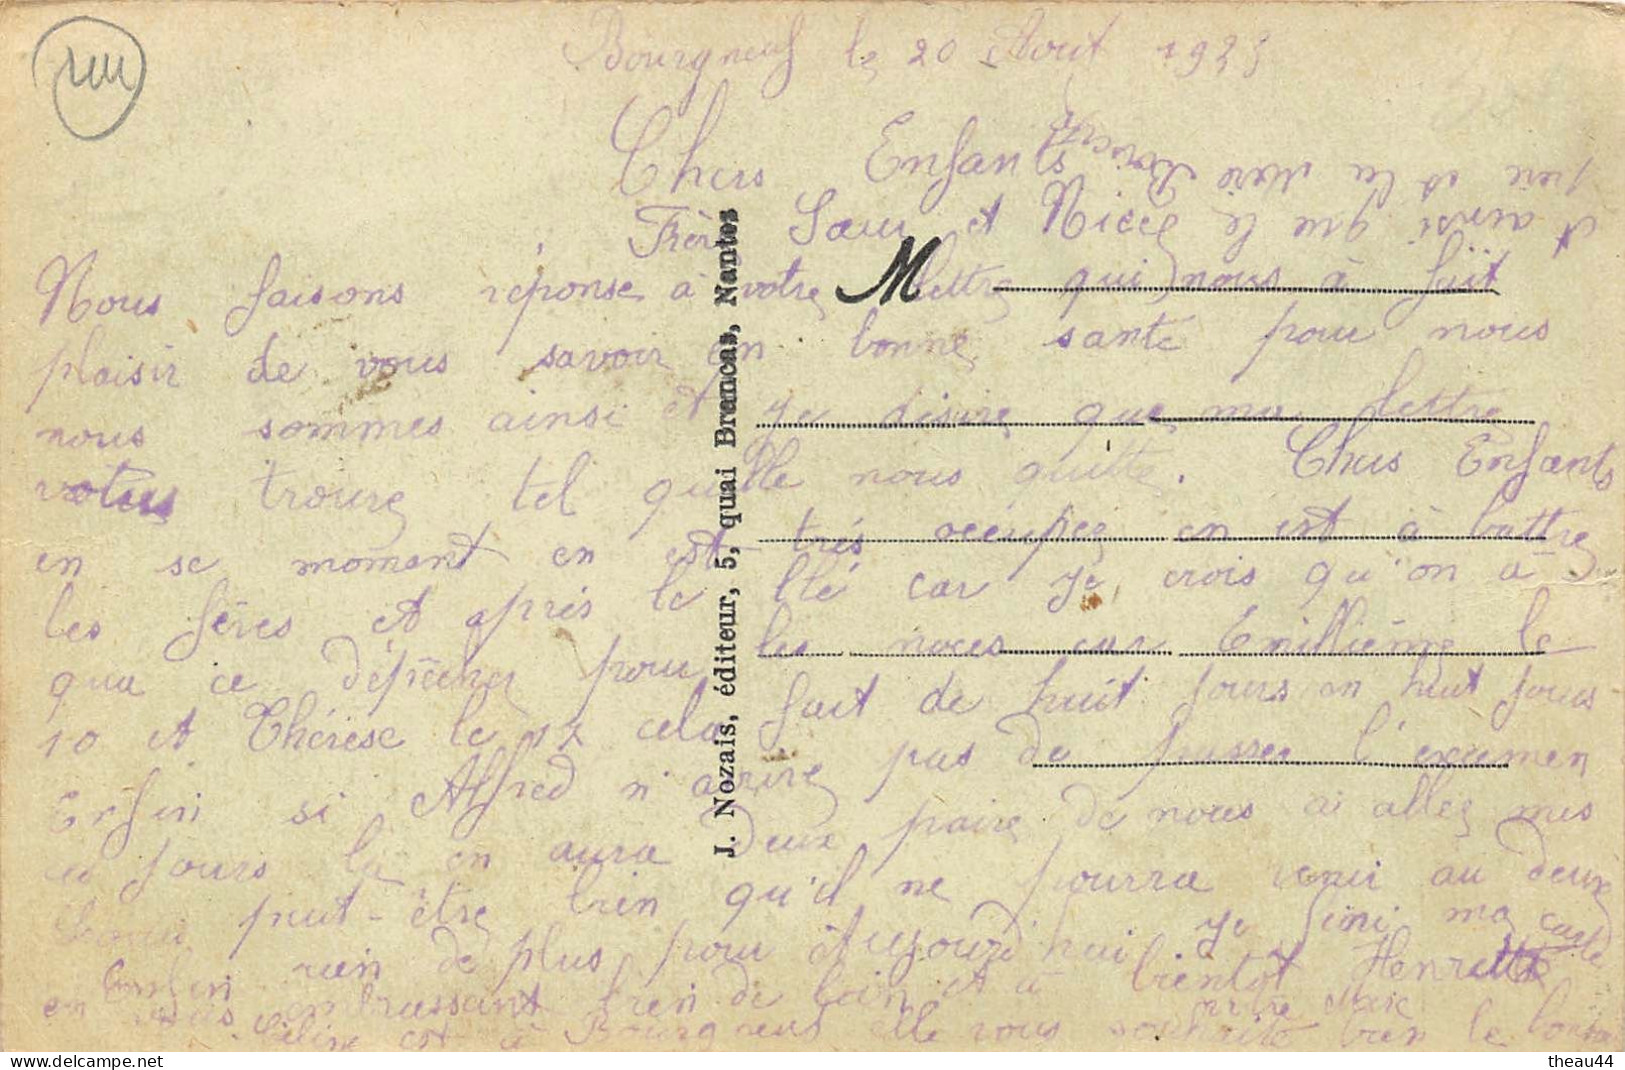 Bourgneuf le 20 Aout 1933
Chers Enfants
Frère Sœur et Niece
Nous faisons réponse à votre lettre qui nous à fait
plaisir de vous savoir en bonne santé pour nous
nous sommes ainsi et je désire que ma lettre
votus trouve tel quelle nous quitte. Chers Enfants
en se moment en est très occupez en est à battre
les fêves et après le blé car je crois qu'on à
qua ce dépêcher pour les noces car Emillienne le
10 et Thérèse le 12 cela fait de huit jours en huit jours
Enfin si Alfred n'arrive pas de passer l'examen
ces jours la en aura deux paire de nous ai allez mis
peut-être bien qu'il ne pourra venir au deux
Enfin rien de plus pour Aujourd'hui je fini ma carte
en vous embrassant bien de loin et à bientôt Henriette
Céline est à Bourgneuf elle vous souhaite bien le bonjour
et ainsi que le
père et la mère
M
J. Nozais, éditeur, 5, quai Brancas, Nantes
theau44